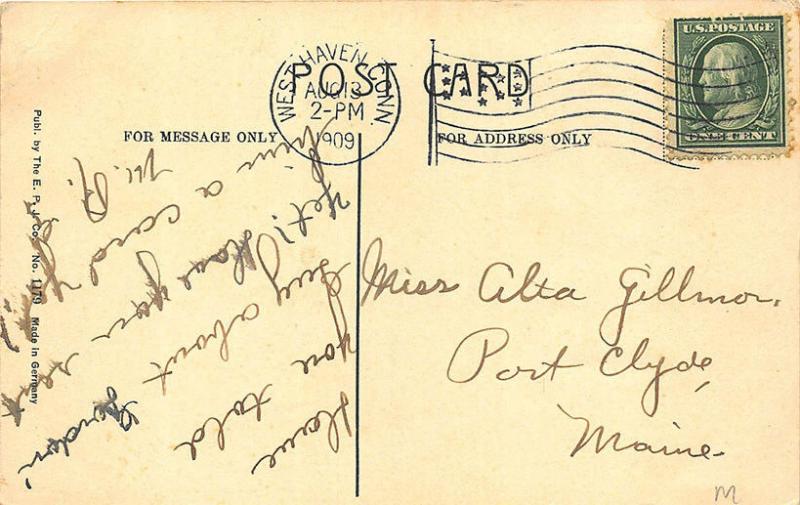 POST CARD
U.S. POSTAGE
ONE CENT
WEST HAVEN, CONN.
AUG 13
2-PM
1909
FOR MESSAGE ONLY
FOR ADDRESS ONLY
Have
you told
Guy about
yet? Have you sent
him a card yet
M. R.
Miss Alta Gillmor,
Port Clyde,
Maine.
Publ. by The E. P. J. Co. No. 1179 Made in Germany
M